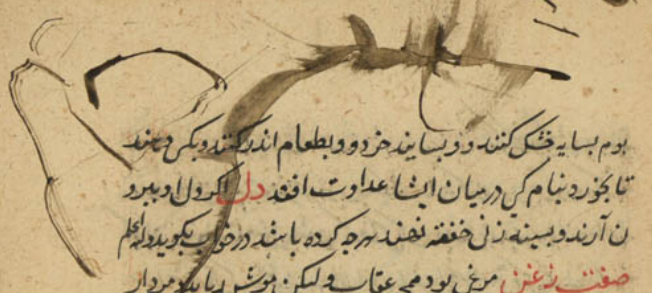 بوم بسایه خشک کنند و بسایند خرد و بطعام اندر کنند و بکسی دهند
تا بخورد بنام کی درمیان ایشا عداوت افتد دل اکر دل او بیرو
ن آرند و بسینه زنی خفته نهند هرجه کرده باشد در خواب بکوید والله اعلم
صفت زغن مرغی بود همچ عقاب ولیکن موش رباید مردار